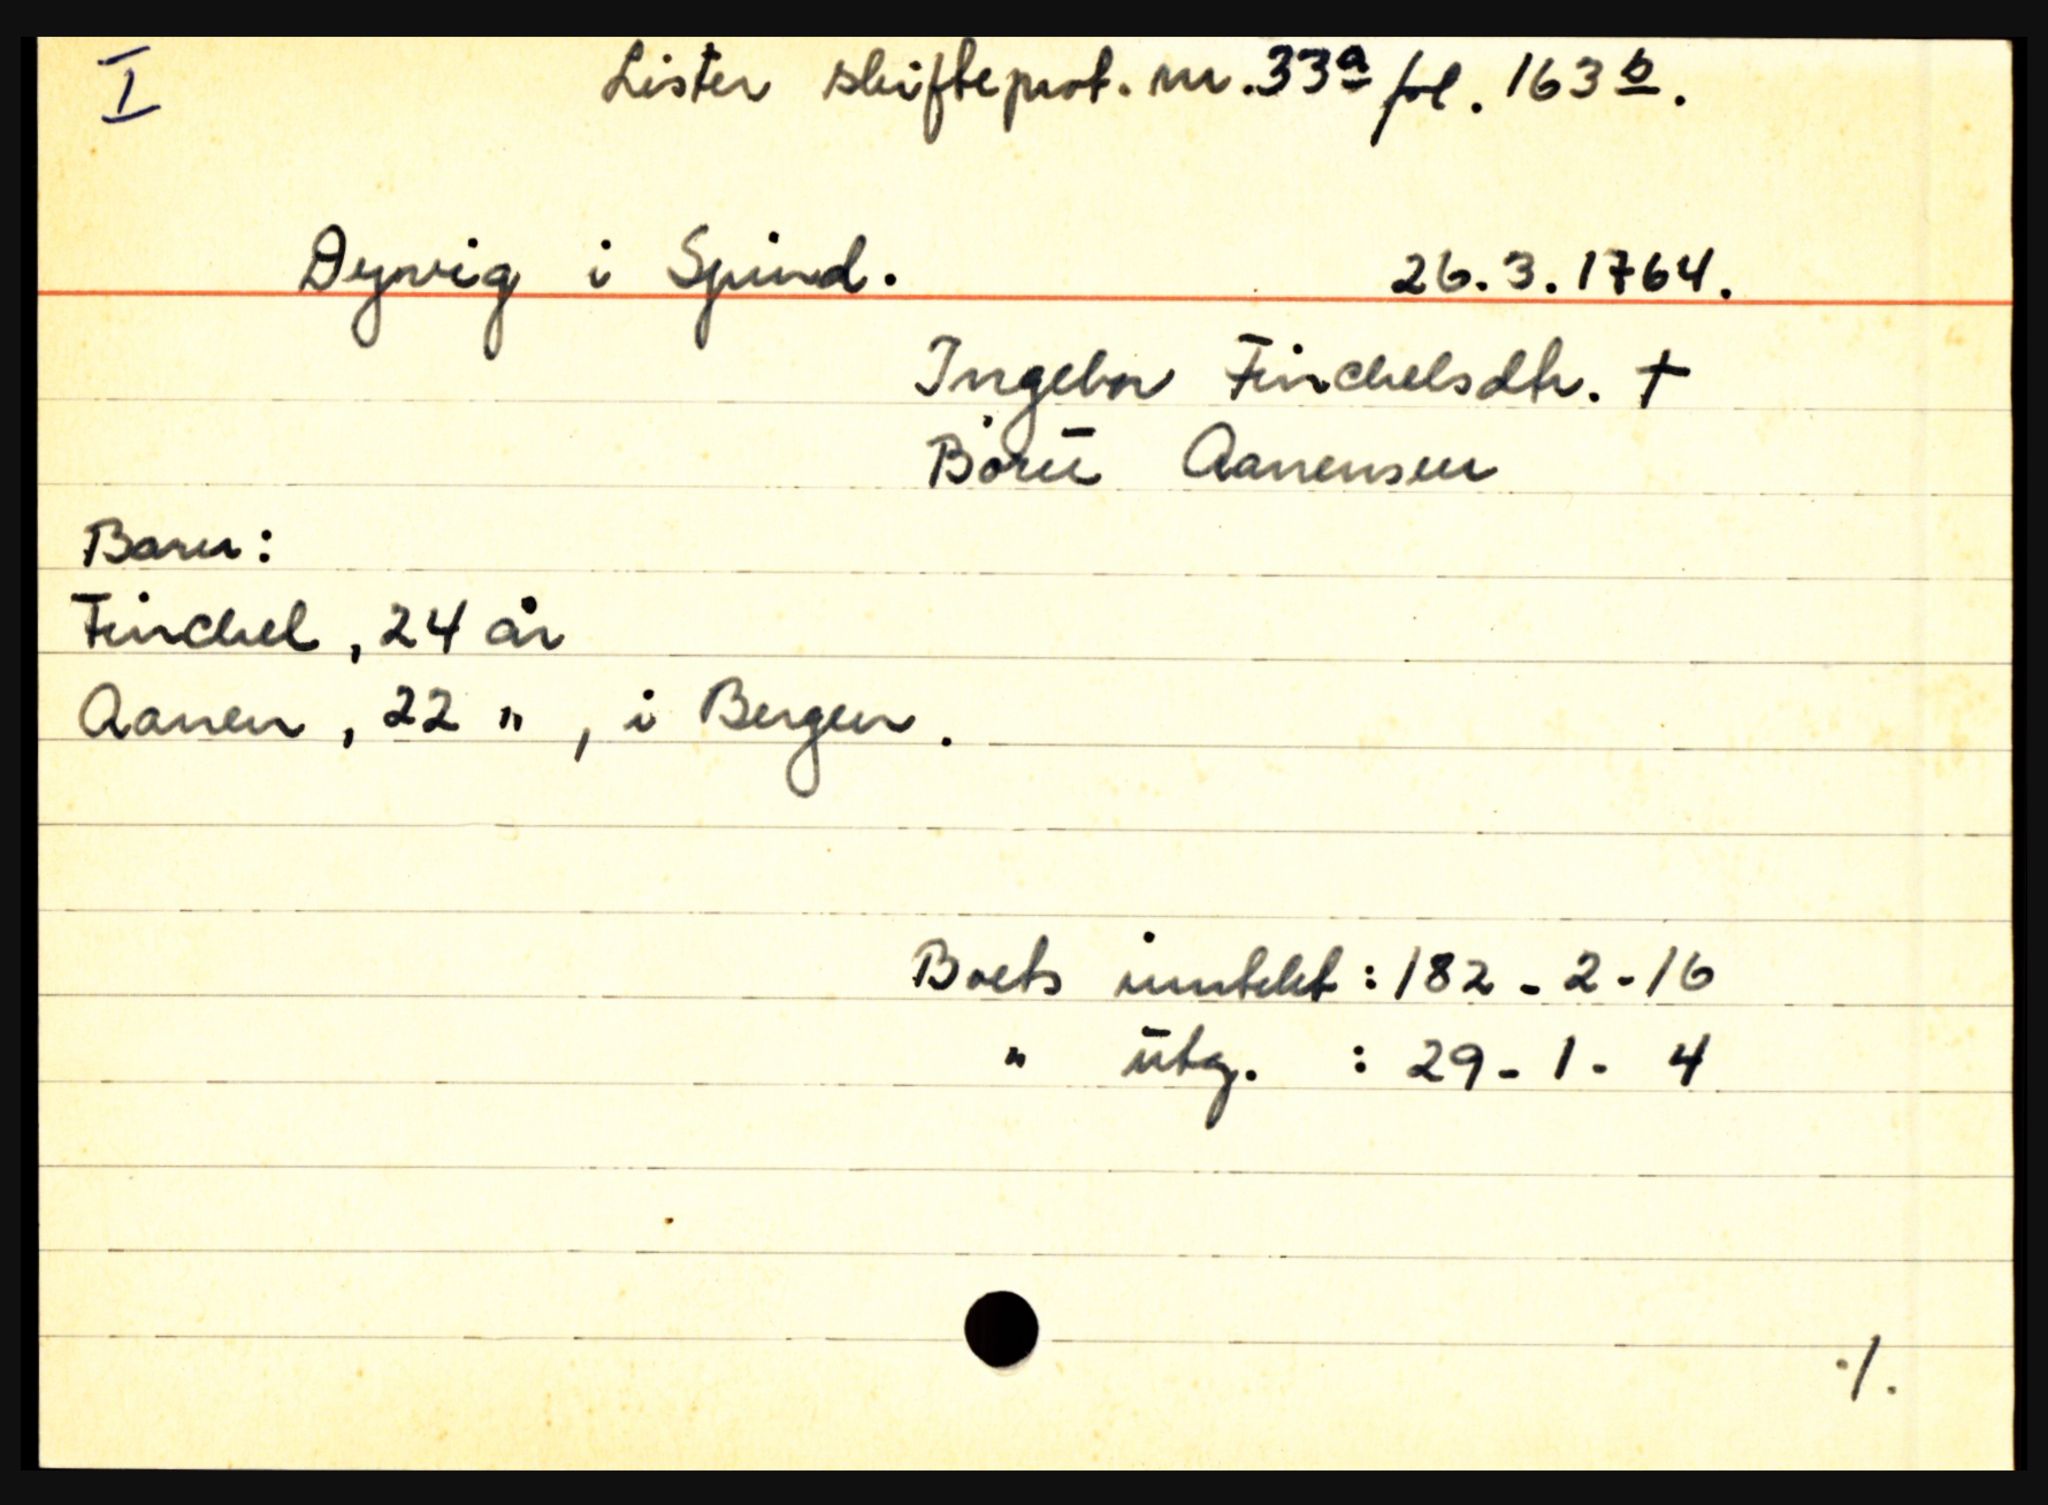 I
Lister skifteprot. nr. 33a fol. 163b.
Dyvig i Spind. 26.3.1764.
Ingebor Finchelsdtr. †
Böru Aanensen
Barn:
Finchel, 24 år
Aanen, 22 ", i Bergen.
Boets inntekt: 182-2-16
" utg. : 29-1-4
./.